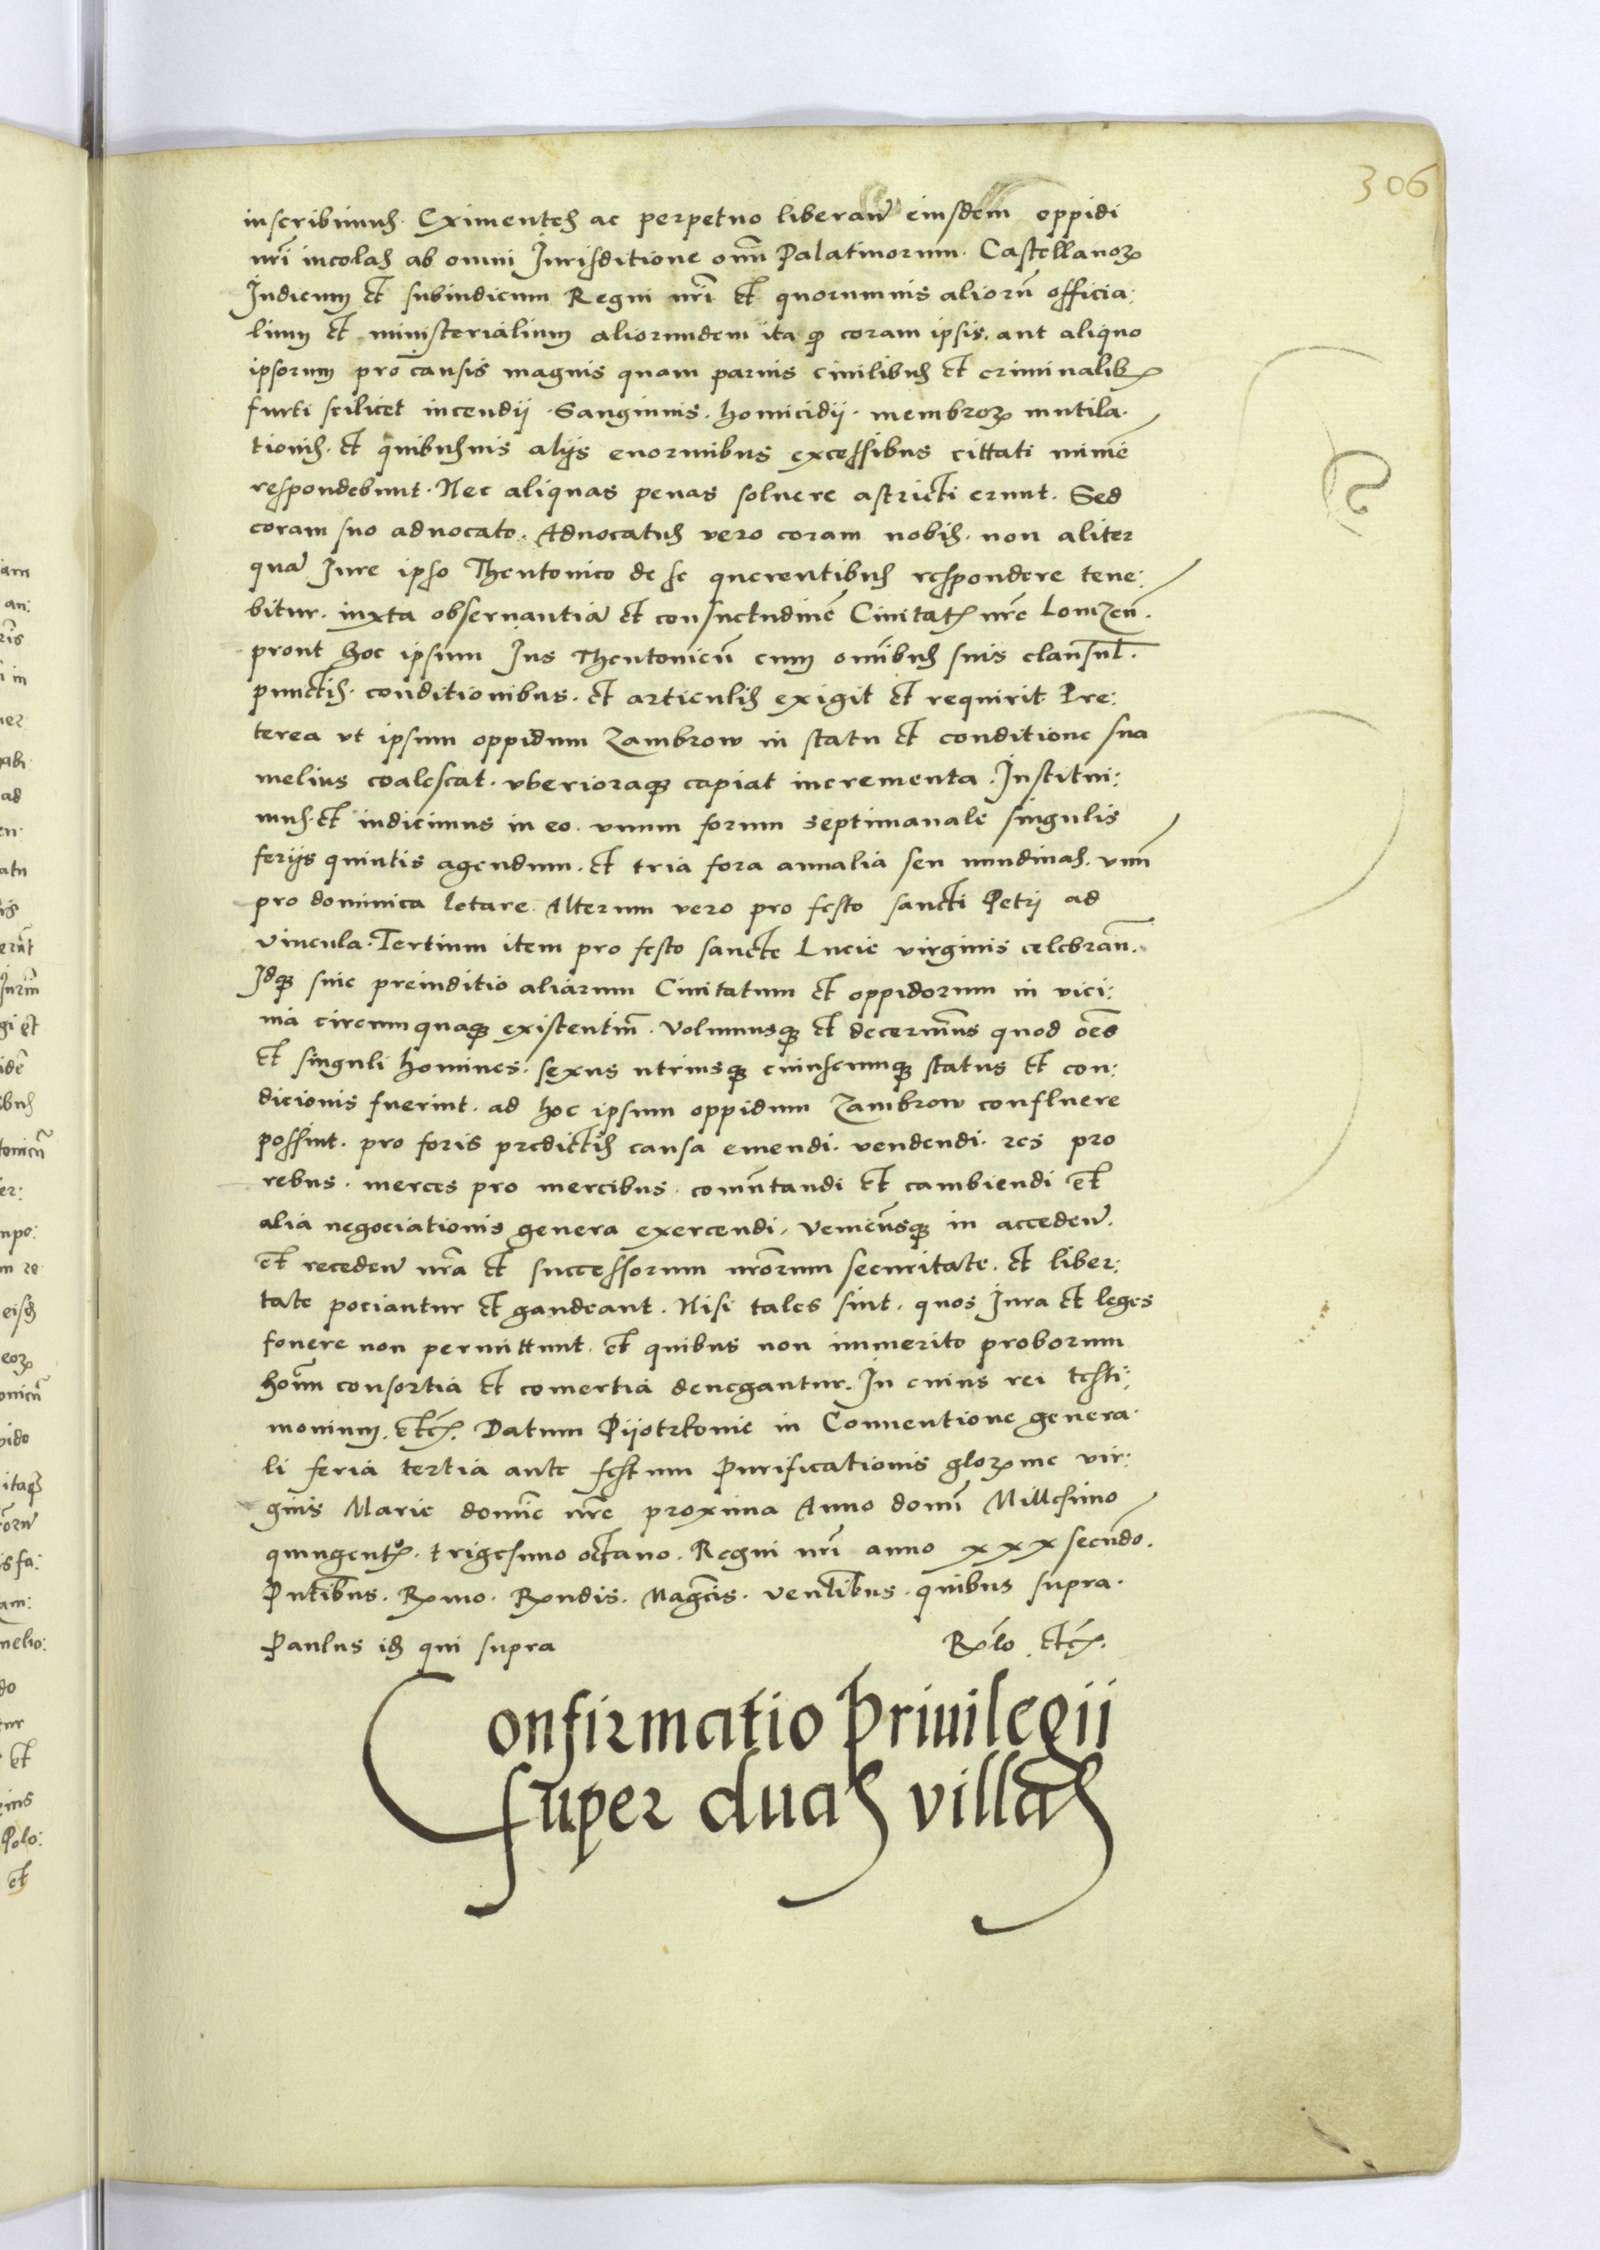 306
inscribimus. Eximentes ac perpetuo liberan̄ eiusdem oppidi
nr̄i incolas ab omni Jurisditione om̄m Palatinorum. Castellanoꝝ
Judicum et subiudicum Regni nr̄i et quorumuis alioru᷑ officia:
lium et ministerialium aliorumdem ita ꝙ coram ipsis. aut aliquo
ipsorum pro causis magnis quam paruis ciuilibus et criminalibꝫ
furti scilicet incendij. Sanguinis. homicidij. membroꝝ mutila.
tionis. et quibusuis alijs enormibus excessibus cittati minime
respondebunt. Nec aliquas penas soluere astricti erunt. Sed
coram suo aduocato. Aduocatus vero coram nobis. non aliter
qua᷑ Jure ipso Theutonico de se querentibus respondere tene:
bitur. iuxta obseruantia᷑ et consuetudine᷑ Ciuitatꝭ nr̄e Lomzen̄.
prout hoc ipsum Jus Theutonicu᷑ cum omnibus suis clausul̄.
punctis. conditionibus. et articulis exigit et requirit. Pre:
terea vt ipsum oppidum Zambrow in statu et conditione sua
melius coalescat. vberioraqꝫ capiat incrementa. Institui:
mus. et indicimus in eo. vnum forum septimanale singulis
ferijs quintis agendum. et tria fora annalia seu nundinas. vnu᷑
pro dominica letare. Alterum vero pro festo sancti Petrj ad
vincula. Tertium item pro festo sancte Lucie virginis celebran̄.
Idqꝫ sine preiuditio aliarum Ciuitatum et oppidorum in vici:
nia circumquaqꝫ existentiu᷑. Volumusqꝫ et decernimus quod oēs
et singuli homines. sexus utriusqꝫ cuiuscumqꝫ status et con:
dicionis fuerint. ad hoc ipsum oppidum Zambrow confluere
possint. pro foris predictis causa emendi. vendendi. res pro
rebus. merces pro mercibus. comu᷑tandi et cambiendi et
alia negociationis genera exercendi. Veniensqꝫ in acceden̄.
et receden̄ nr̄a et successorum nr̄orum securitate. et liber:
tate pociantur et gaudeant. Nisi tales sint. quos Jura et leges
fouere non permittunt. et quibus non immerito proborum
hoīm consortia et comertia denegantur. In cuius rei testi:
monium. etcꝭ. Datum Pijotrkouie in Conuentione genera.
li feria tertia ante festum Purificationis gloꝝme vir:
ginis Marie domīe nr̄e proxima Anno domī Millesimo
quingentꝭo. trigesimo octauo. Regni nr̄i anno xxx secundo.
Pn̄tibus. Rꝫmo. Rꝫndis. Magcis. Ven̄tibus. quibus supra.
Paulus idꝫ qui supra
Rꝫlo etcꝭ.
Confirmatio Priuilegii
super duas villas